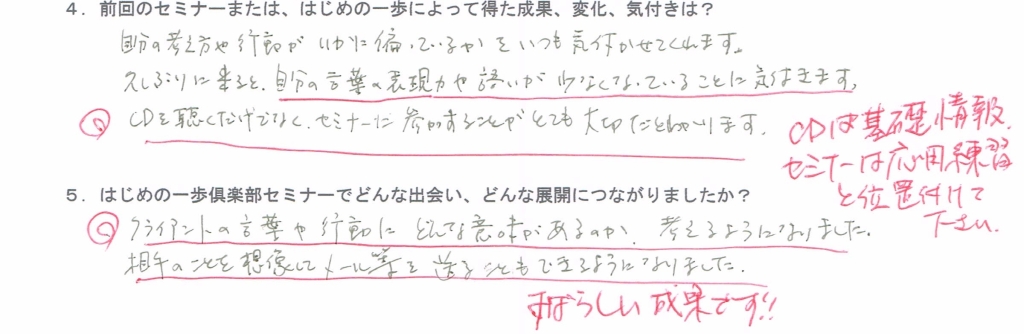 4．前回のセミナーまたは、はじめの一歩によって得た成果、変化、気付きは？
自分の考え方や行動がいかに偏っているかをいつも気付かせてくれます。
久しぶりに来ると、自分の言葉の表現力や語いが少なくなっていることに気付きます。
CDを聴くだけでなく、セミナーに参加することがとても大切だとわかります。
CDは基礎情報、
セミナーは応用練習
と位置付けて
下さい。
5．はじめの一歩倶楽部セミナーでどんな出会い、どんな展開につながりましたか？
クライアントの言葉や行動にどんな意味があるのか、考えるようになりました。
相手のことを想像してメール等を送ることもできるようになりました。
すばらしい成果です!!